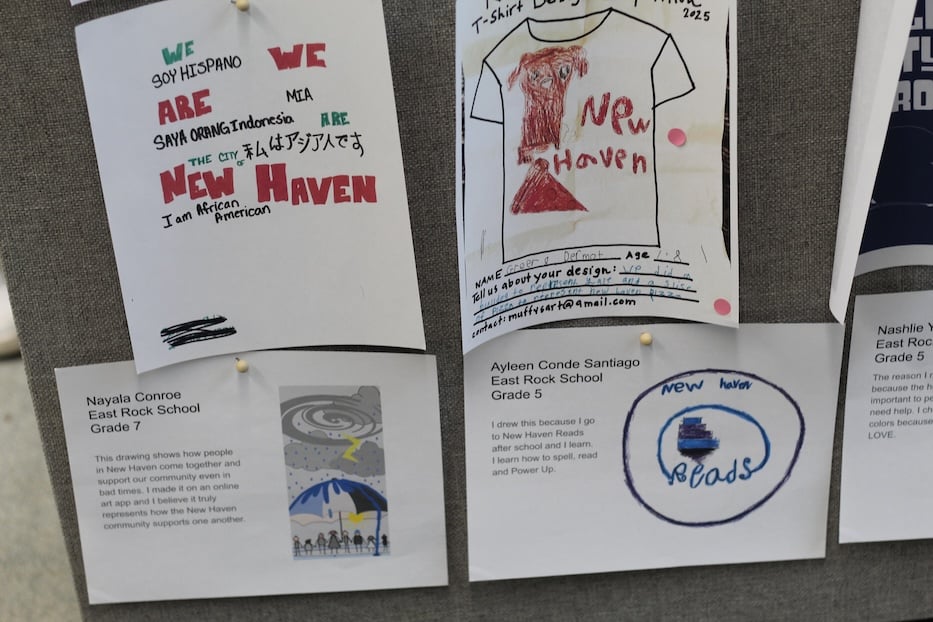 WE
SOY HISPANO
WE
ARE
MIA
SAYA ORANG Indonesia
ARE
THE CITY OF
私はアジア人です
NEW HAVEN
I am African
American
T-shirt
2025
New
Haven
NAME Age 7-8
Tell us about your design: We did a
bulldog to represent Yale and a slice
of pizza to represent new haven pizza
contact: muffysart@gmail.com
Nayala Conroe
East Rock School
Grade 7
This drawing shows how people
in New Haven come together and
support our community even in
bad times. I made it on an online
art app and I believe it truly
represents how the New Haven
community supports one another.
Ayleen Conde Santiago
East Rock School
Grade 5
I drew this because I go
to New Haven Reads
after school and I learn.
I learn how to spell, read
and Power Up.
New haven
Reads
Nashlie
East
Grade 5
The reason I
because the
important to
need help. I
colors
LOVE.